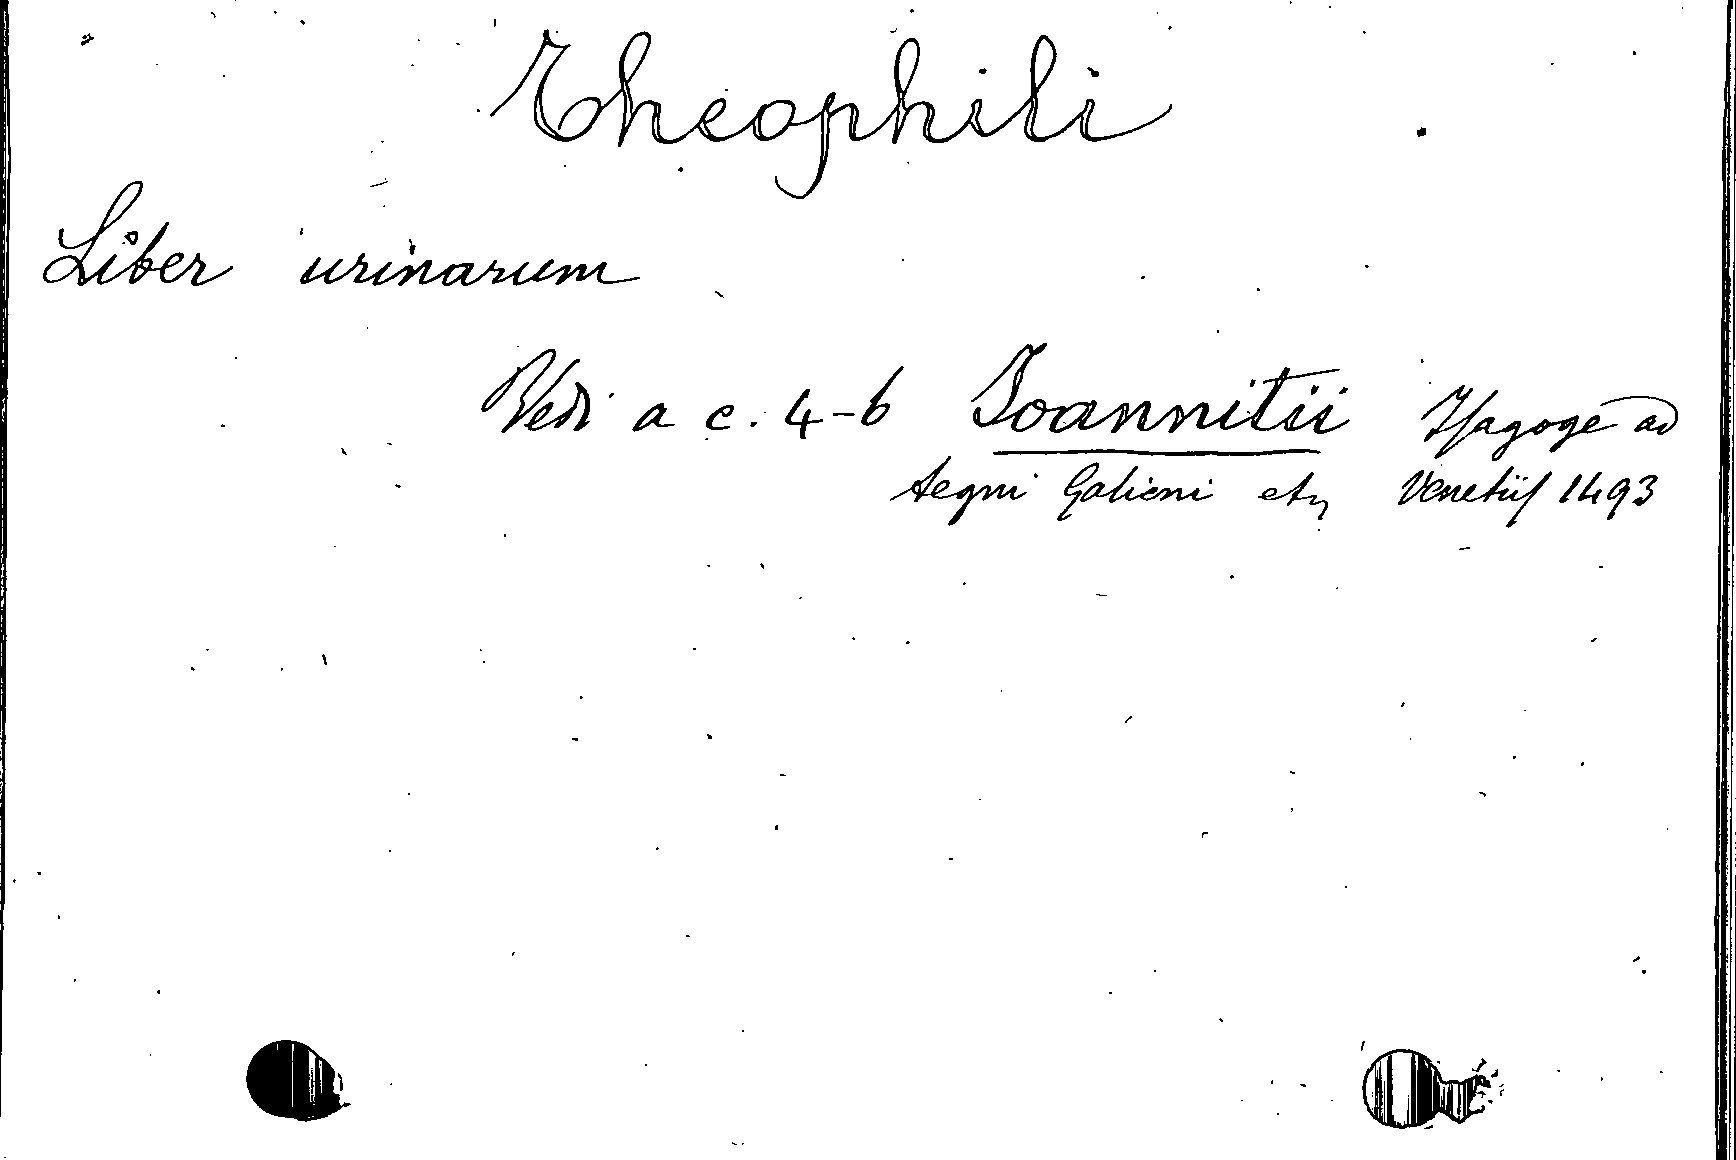 Theophili
Liber urinarum
Vedi a c. 4-6 Joannitii Isagoge ad
tegni Galieni etc Venetiis 1493